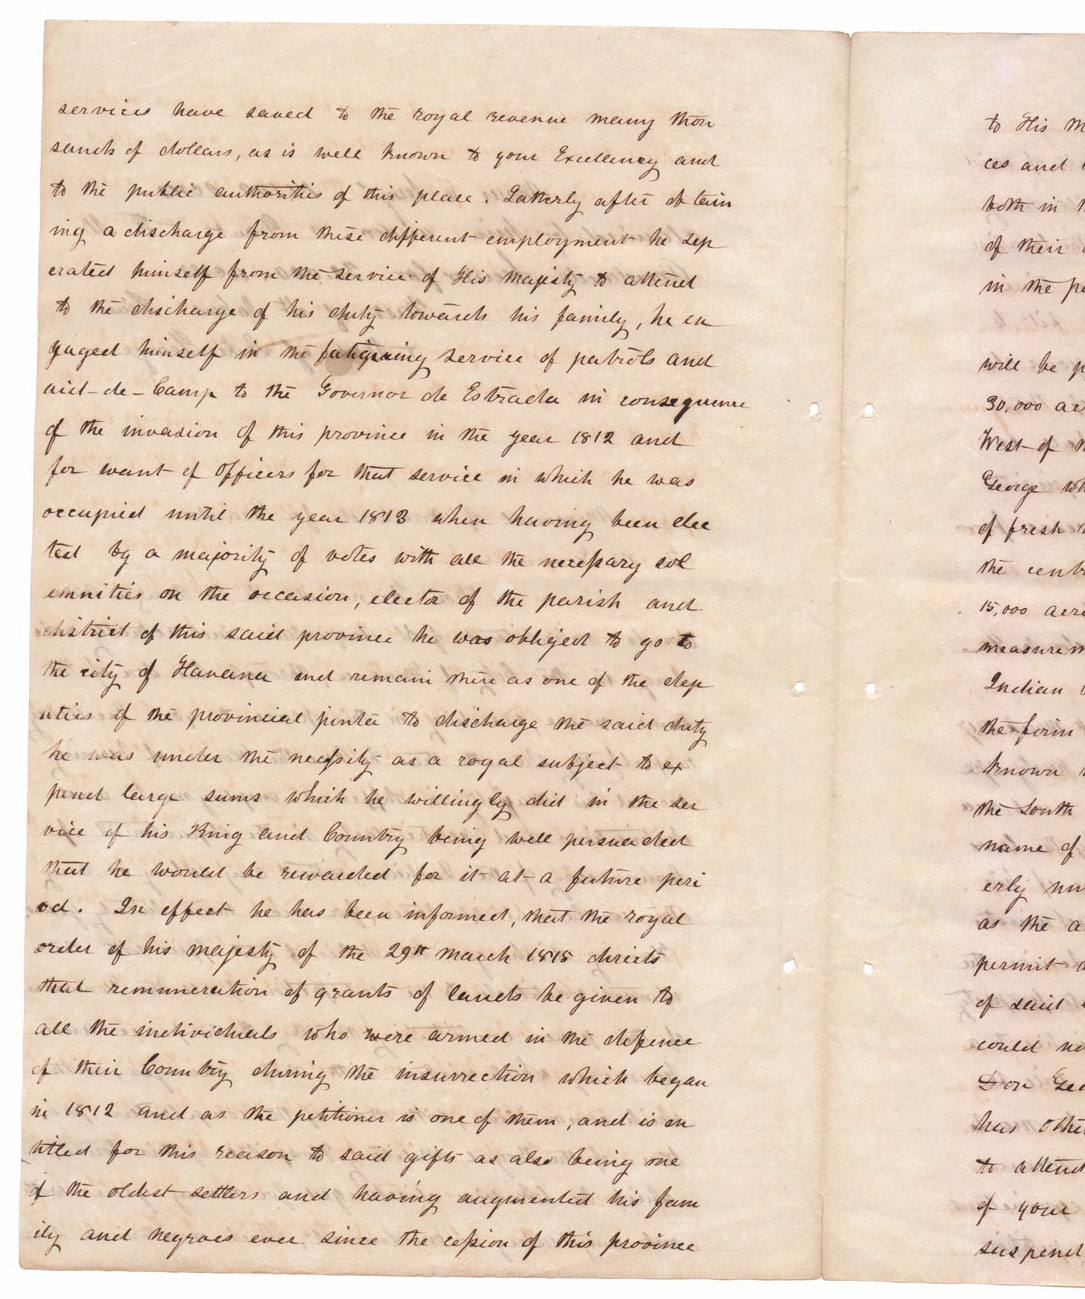 services have saved to the royal revenue many thou
sands of dollars, as is well known to your Excellency and
to the public authorities of this place. Latterly after obtain
ing a discharge from these different employment he sep
erated himself from the service of His Majesty to attend
to the discharge of his duty towards his family, he en
gaged himself in the fatiguing service of patrols and
aid-de-Camp to the Governor de Estrada in consequence
of the invasion of this province in the year 1812 and
for want of officers for that service in which he was
occupied until the year 1813 when having been elec
ted by a majority of votes with all the necessary sol
emnities on the occasion, elector of the parish and
district of this said province he was obliged to go to
the city of Havana and remain there as one of the dep
uties of the provincial junta to discharge the said duty
he was under the necessity as a royal subject to ex
pend large sums which he willingly did in the ser
vice of his King and Country being well persuaded
that he would be rewarded for it at a future peri
od. In effect he has been informed, that the royal
order of his majesty of the 29th March 1815 directs
that remuneration of grants of lands be given to
all the individuals who were armed in the defence
of their Country during the insurrection which began
in 1812 and as the petitioner is one of them, and is en
titled for this reason to said gifts as also being one
of the oldest settlers and having augmented his fam
ily and negroes ever since the cession of this province
to His M
ces and
both in
of their
in the pe
will be p
30,000 ac
West of
George wh
of fresh
the centr
15,000 acre
measurem
Indian
the form
known
the South
name of
erly
as the a
permit
of said
could no
Don Geo
has othe
to attend
of your
suspend